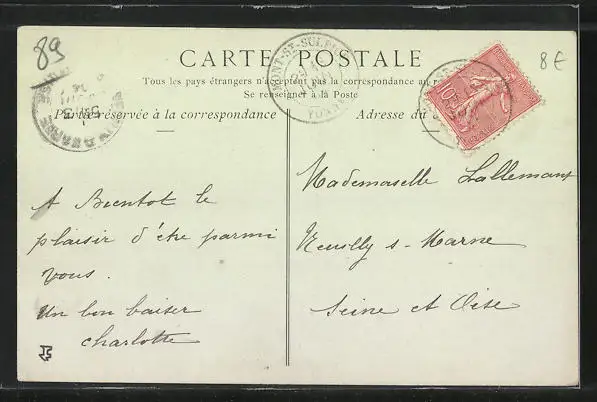 89
8 €
CARTE POSTALE
Tous les pays étrangers n'acceptent pas la correspondance au
Se renseigner à la Poste
Partie réservée à la correspondance
Adresse du
MONT-ST-SULPICE
YONNE
10
A Bientot le
plaisir d'être parmi
vous.
Un bon baiser
Charlotte
Mademoiselle Lallemant
Neuilly s - Marne
Seine et Oise